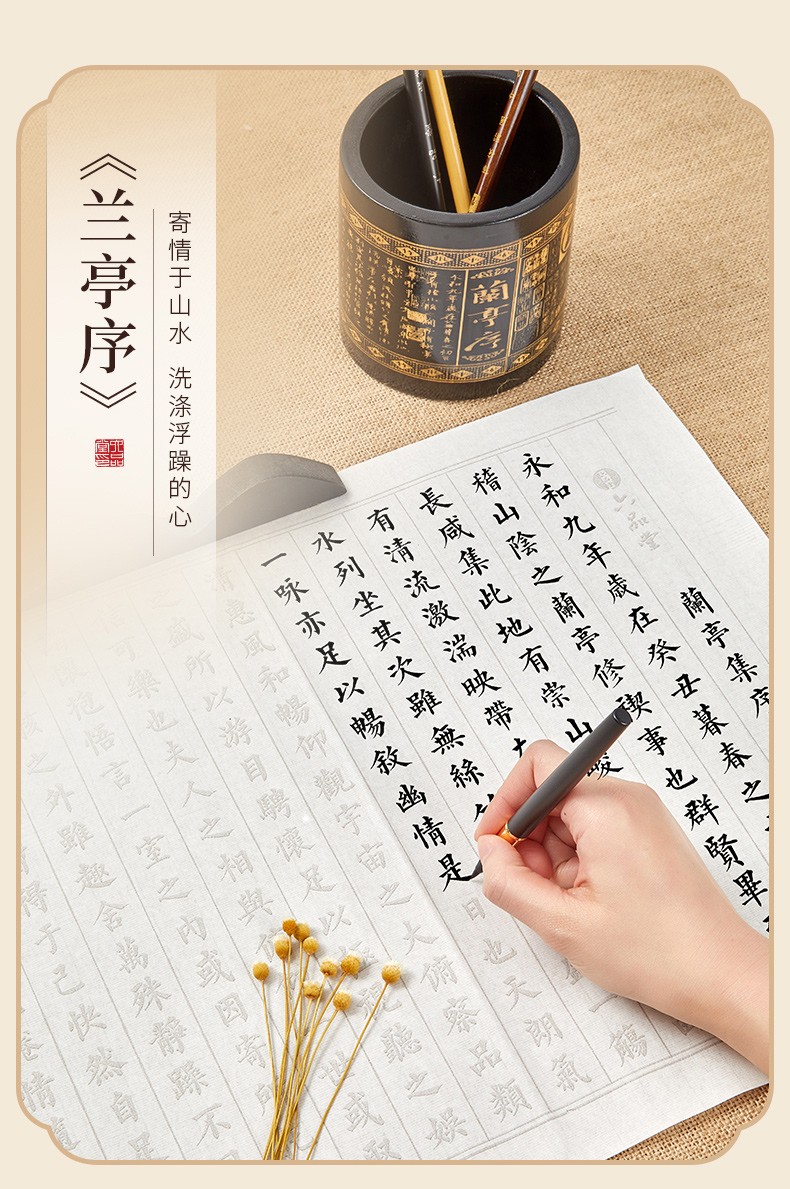 《兰亭序》
寄情于山水 洗涤浮躁的心
六品堂印
蘭亭序
六品堂
蘭亭集序
永和九年歲在癸丑暮春之
稽山陰之蘭亭修禊事也群賢畢
長咸集此地有崇山峻
有清流激湍映帶
水列坐其次雖無絲 一觴
一咏亦足以暢敘幽情是日也天朗氣
惠風和暢仰觀宇宙之大俯察品類
盛所以游目騁懷足以極視聽之娛
樂也夫人之相與 世或取
悟言一室之內或因寄所
之外雖趣舍萬殊靜躁不
得于己快然自足
情隨